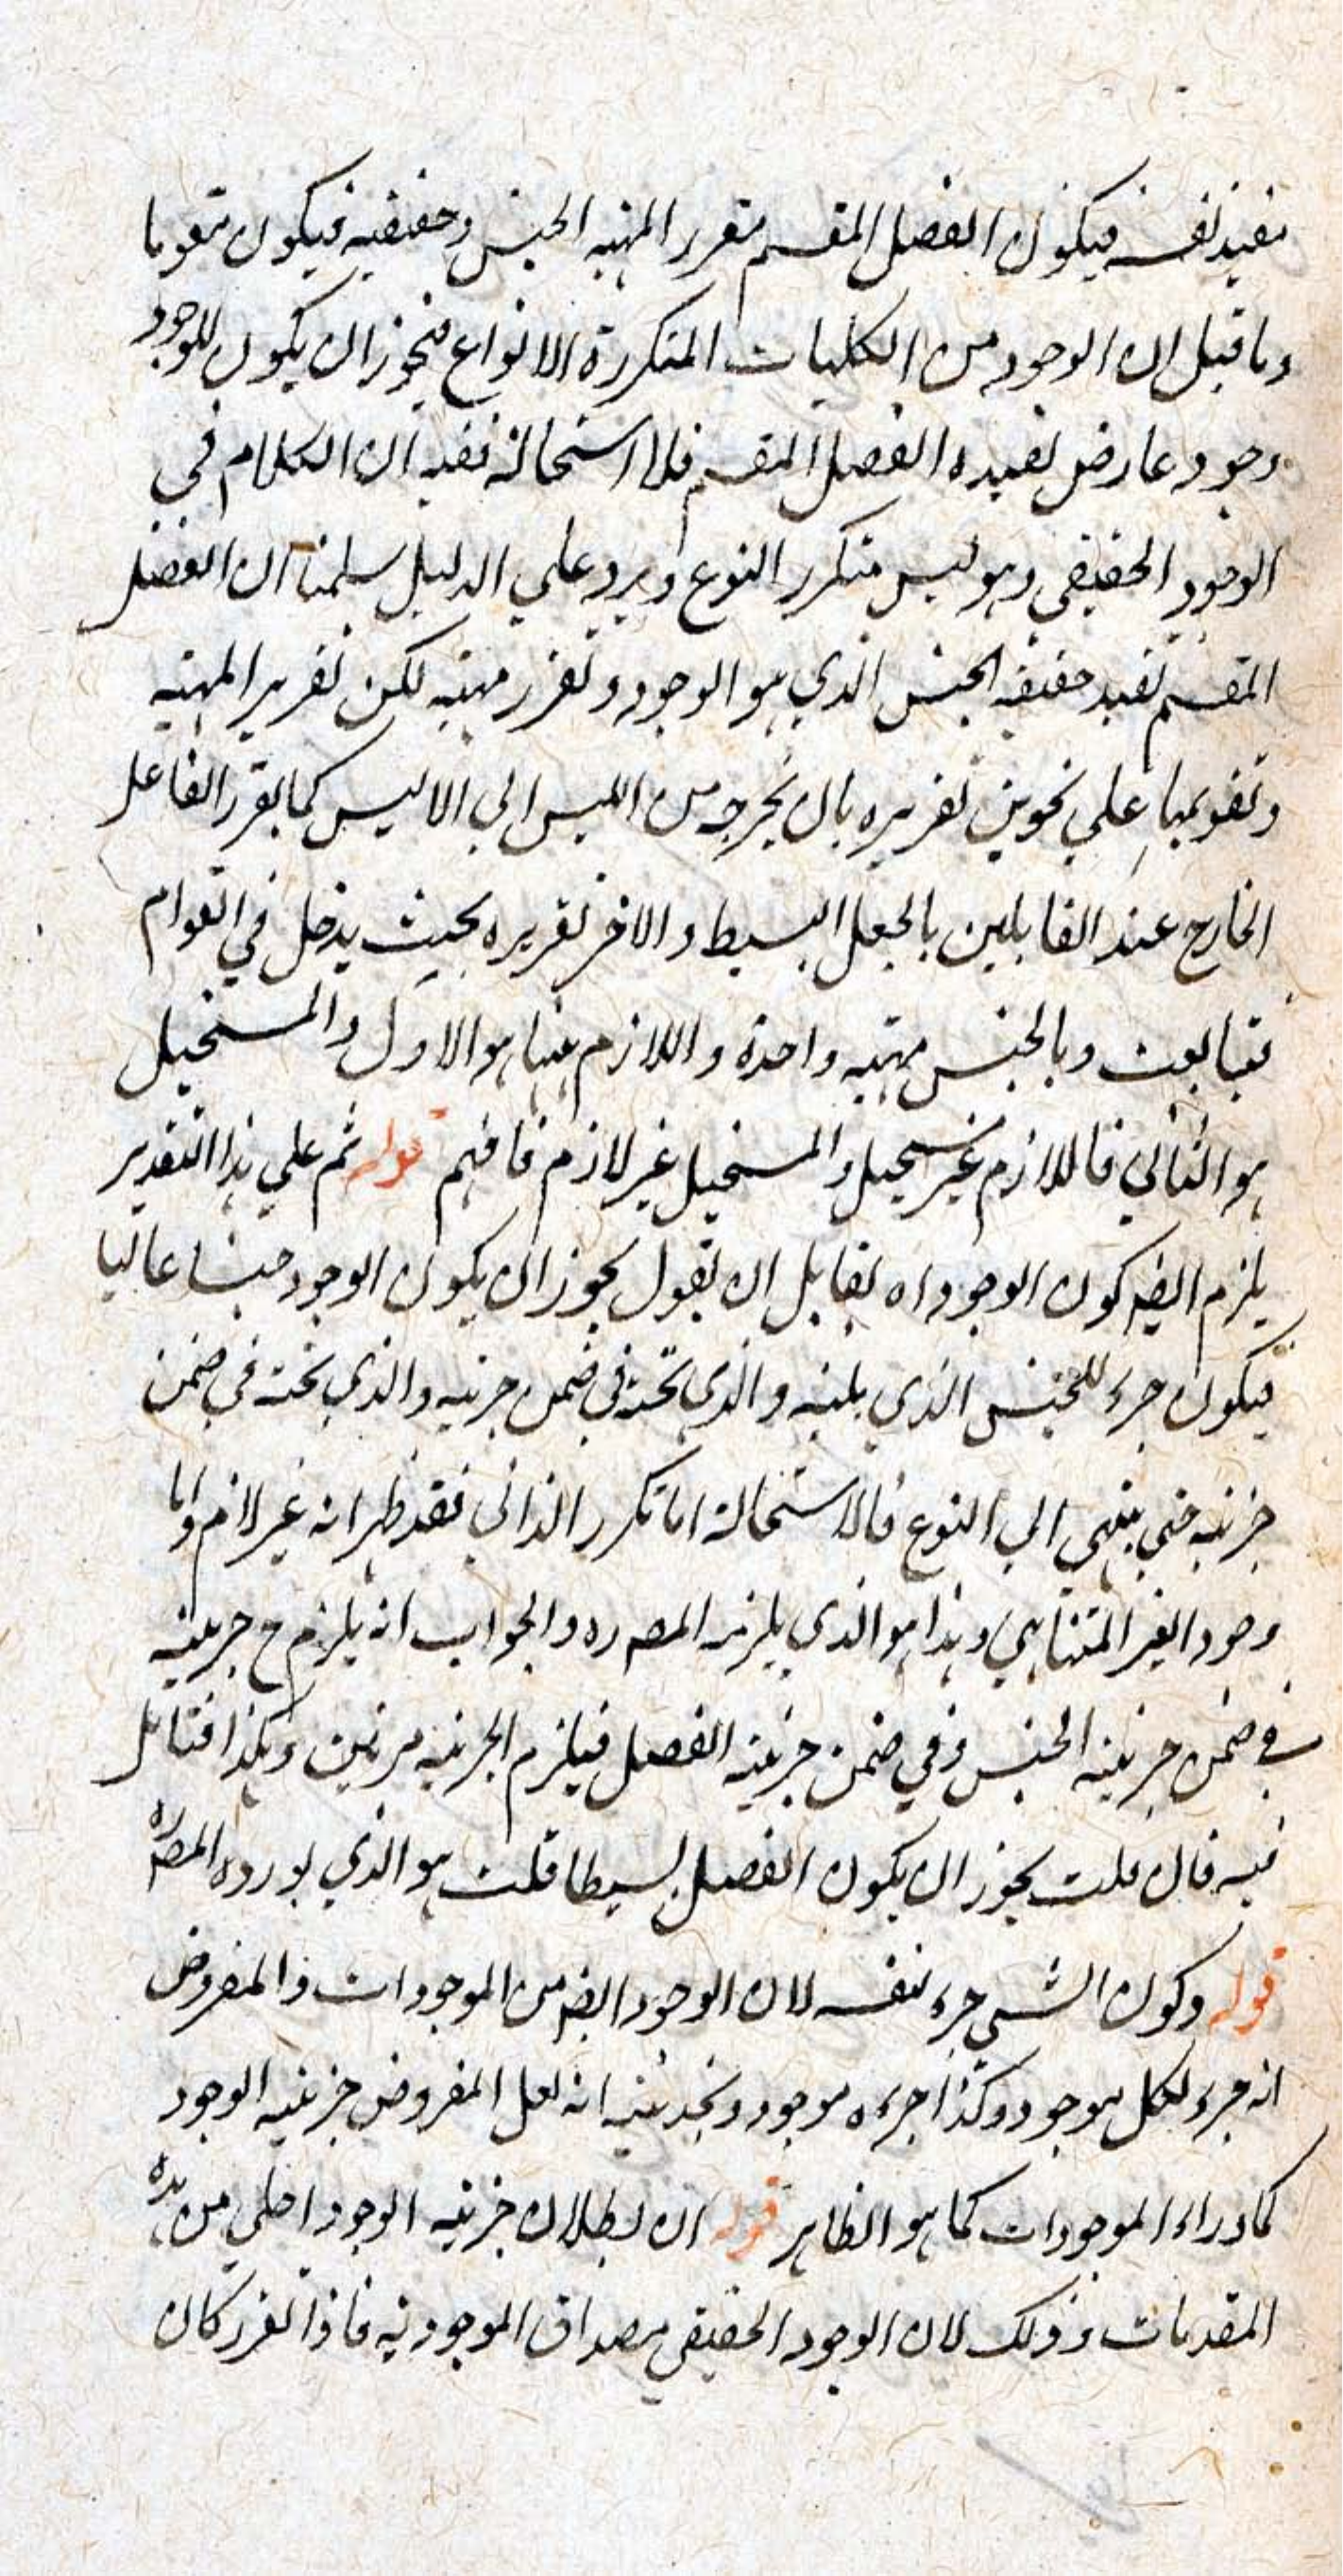 يفيد نفسه فيكون الفصل المقسم مقررا لمهيه الجنس وحقيقيه فيكون مقوما
وما قيل ان الوجود من الكليات المتكررة الانواع فيجوز ان يكون للوجود
وجود عارض يفيده الفصل المقسم فلا استحالة ففيه ان الكلام في
الوجود الحقيقي وهو ليس متكرر النوع ويرد علي الدليل سلمنا ان الفصل
المقسم يفيد حقيقة الجنس الذي هو الوجود وتقرر مهيته لكن تقرير المهيه
وتقويمها علي نحوين تقريره بان يخرجه من الليس الي الاليس كما يقرر الفاعل
الخارج عند القايلين بالجعل البسيط والاخر تقريره بحيث يدخل في القوام
وبالجنس مهيه واحدة واللازم ههنا هو الاول والمستحيل
هو الثاني فاللازم غير مستحيل والمستحيل غير لازم فافهم قوله ثم علي هذا التقدير
يلزم ايضا كون الوجود اه لقايل ان يقول يجوز ان يكون الوجود جنسا عاليا
فيكون جزء للجنس الذي يليه والذي تحته في ضمن جزئيه والذي تحته في ضمن
جزئيه حتي ينتهي الي النوع فالاستحالة اما تكرر الذاتي فقد ظهر انه غير لازم واما
وجود الغير المتناهي وهذا هو الذي يلزمه المصـ ره والجواب انه يلزم ح جزئيته
في ضمن جزئية الجنس وفي ضمن جزئية الفصل فيلزم الجزئيه مرتين وهكذا فتامل
فيه فان قلت يجوز ان يكون الفصل بسيطا قلت هو الذي يورده المصـ ره
قوله وكون الشي جزء لنفسه لان الوجود ايضا من الموجودات والمفروض
انه جزء لكل موجود وكذا جزءه موجود ويخدشه انه لعل المفروض جزئيه الوجود
لما وراء الموجودات كما هو الظاهر قوله ان بطلان جزئيه الوجود اجلي من هذه
المقدمات وذلك لان الوجود الحقيقي مصداق الموجودية فاذا تقرر كان